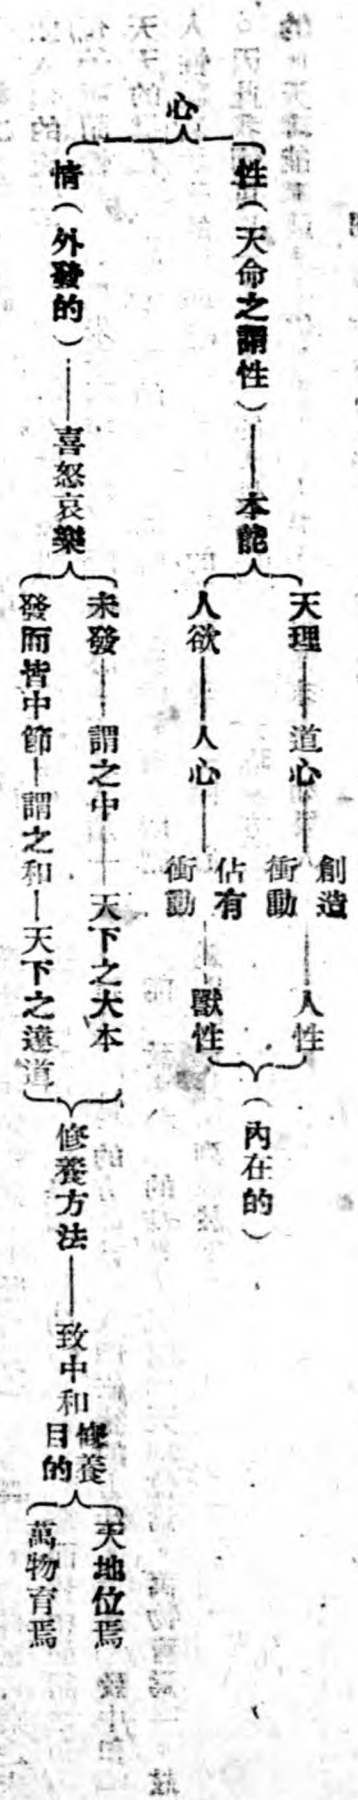 心
性（天命之謂性）——本能
天理——道心——創造衝動——人性
人欲——人心——佔有衝動——獸性
（內在的）
情（外發的）——喜怒哀樂
未發——謂之中——天下之大本
發而皆中節——謂之和——天下之達道
修養方法——致中和
修養目的
天地位焉
萬物育焉